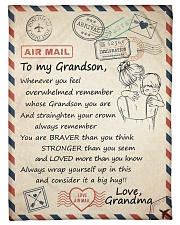 AIR MAIL
To my Grandson,
Whenever you feel
overwhelmed remember
whose Grandson you are
And strainghten your crown
always remember
You are BRAVER than you think
STRONGER than you seem
and LOVED more than you know
Always wrap yourself up in this
and consider it a big hug!!
Love,
Grandma
LOVE
AIR MAIL